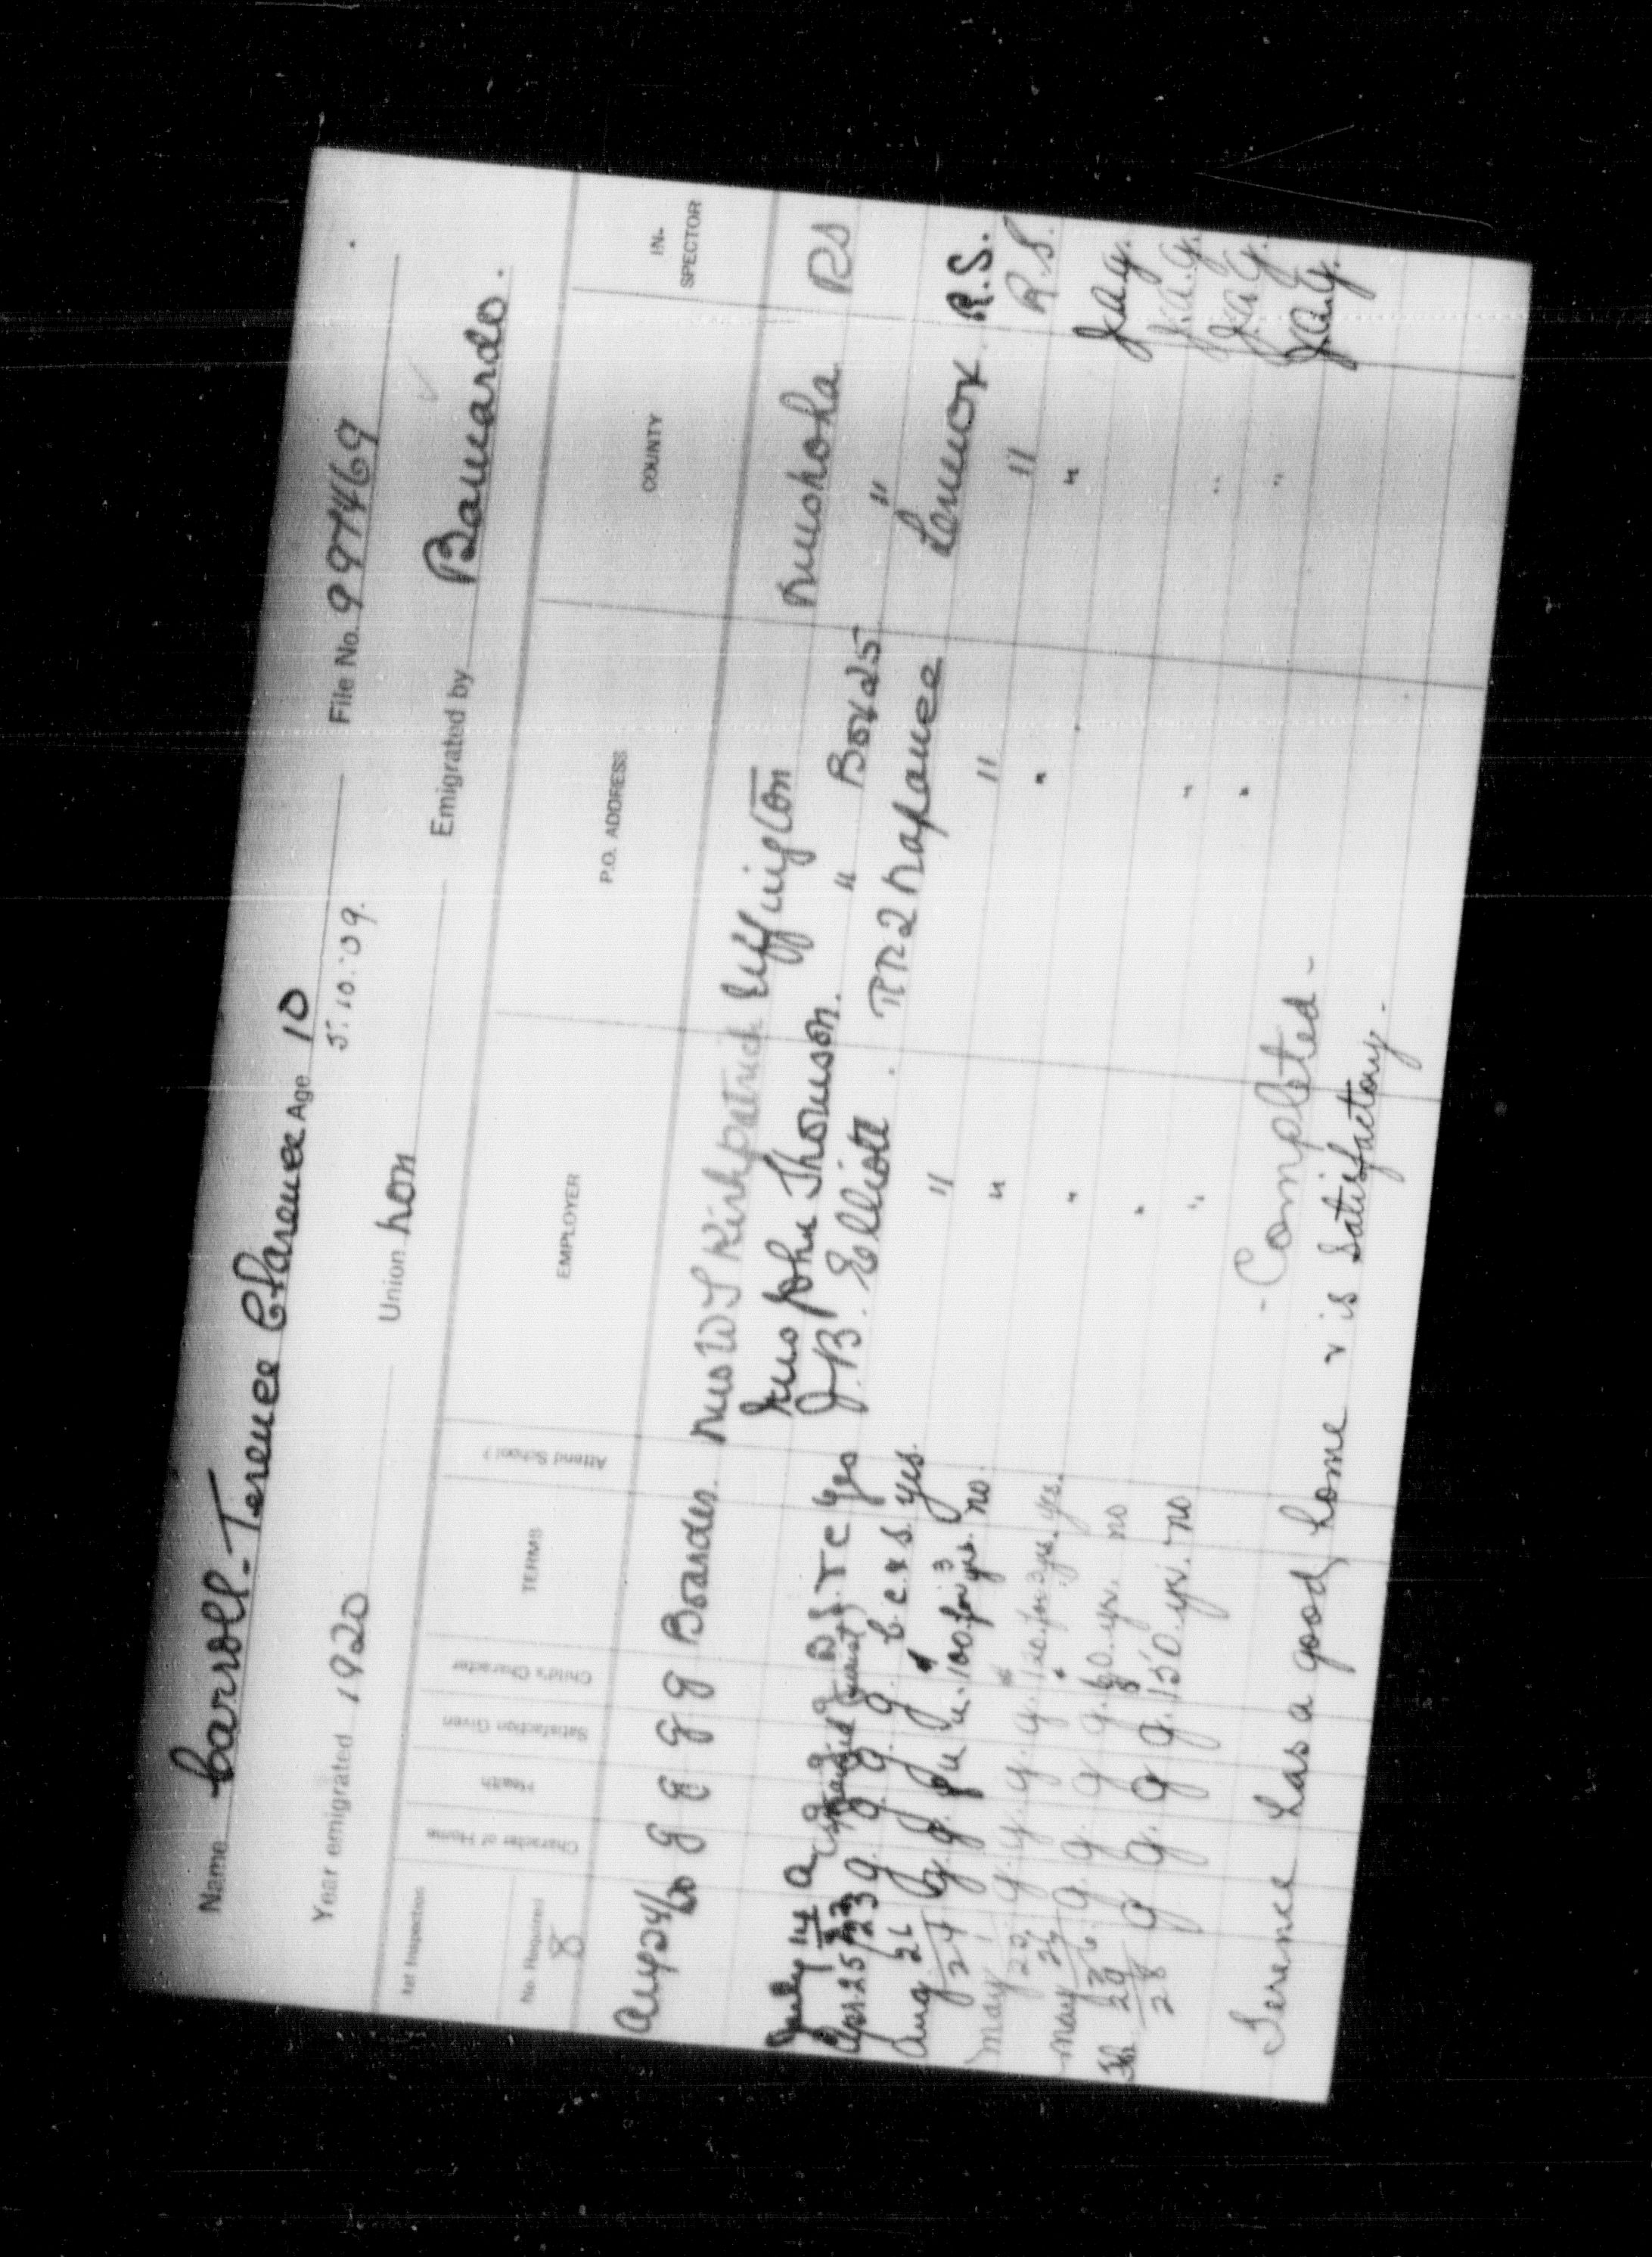 Name Carroll - Terence Clarence Age 10 File No. 997469
5.10.'09.
Year emigrated 1920 Union non Emigrated by Barnardo.
1st Inspection
No. Required Character of Home Health Satisfaction Given Child's Character TERMS Attend School? EMPLOYER P.O. ADDRESS COUNTY IN-SPECTOR
8
Aug 24/20 G G G G Boarder. Mrs W S Kirkpatrick Uffington Muskoka RS
July 14 Mrs John Thomson. " Box 25 "
Apr 25/23 g. g. g. g. yes J.B. Elliott. RR2 Napanee Lennox R.S.
Aug 21/24 g. g. b. c. & s. yes. " " " R.S.
May 1 100. for 3 yrs. no. " " " J.A.G.
May 26 g. g. g. g. 120. for 3 yrs. yes. " J.A.G.
g. g. g. yr. no " " " J.A.G.
Fb 29/28 g g. g g. 150. yr. no " " " J.A.G.
- Completed -
Terence has a good home & is satisfactory.